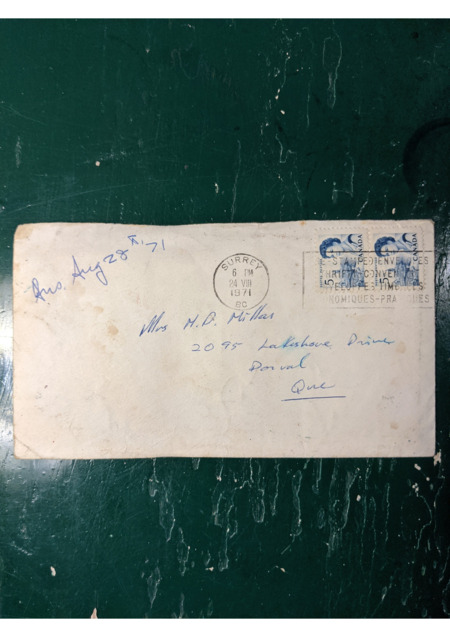 Ans. Aug 28th, 71
SURREY
6 PM
24 VIII
1971
BC
CANADA
CANADA
5
5
NOMIQUES-PRATIQUES
Mrs M.D. Millar
2095 Lakeshore Drive
Dorval
Que